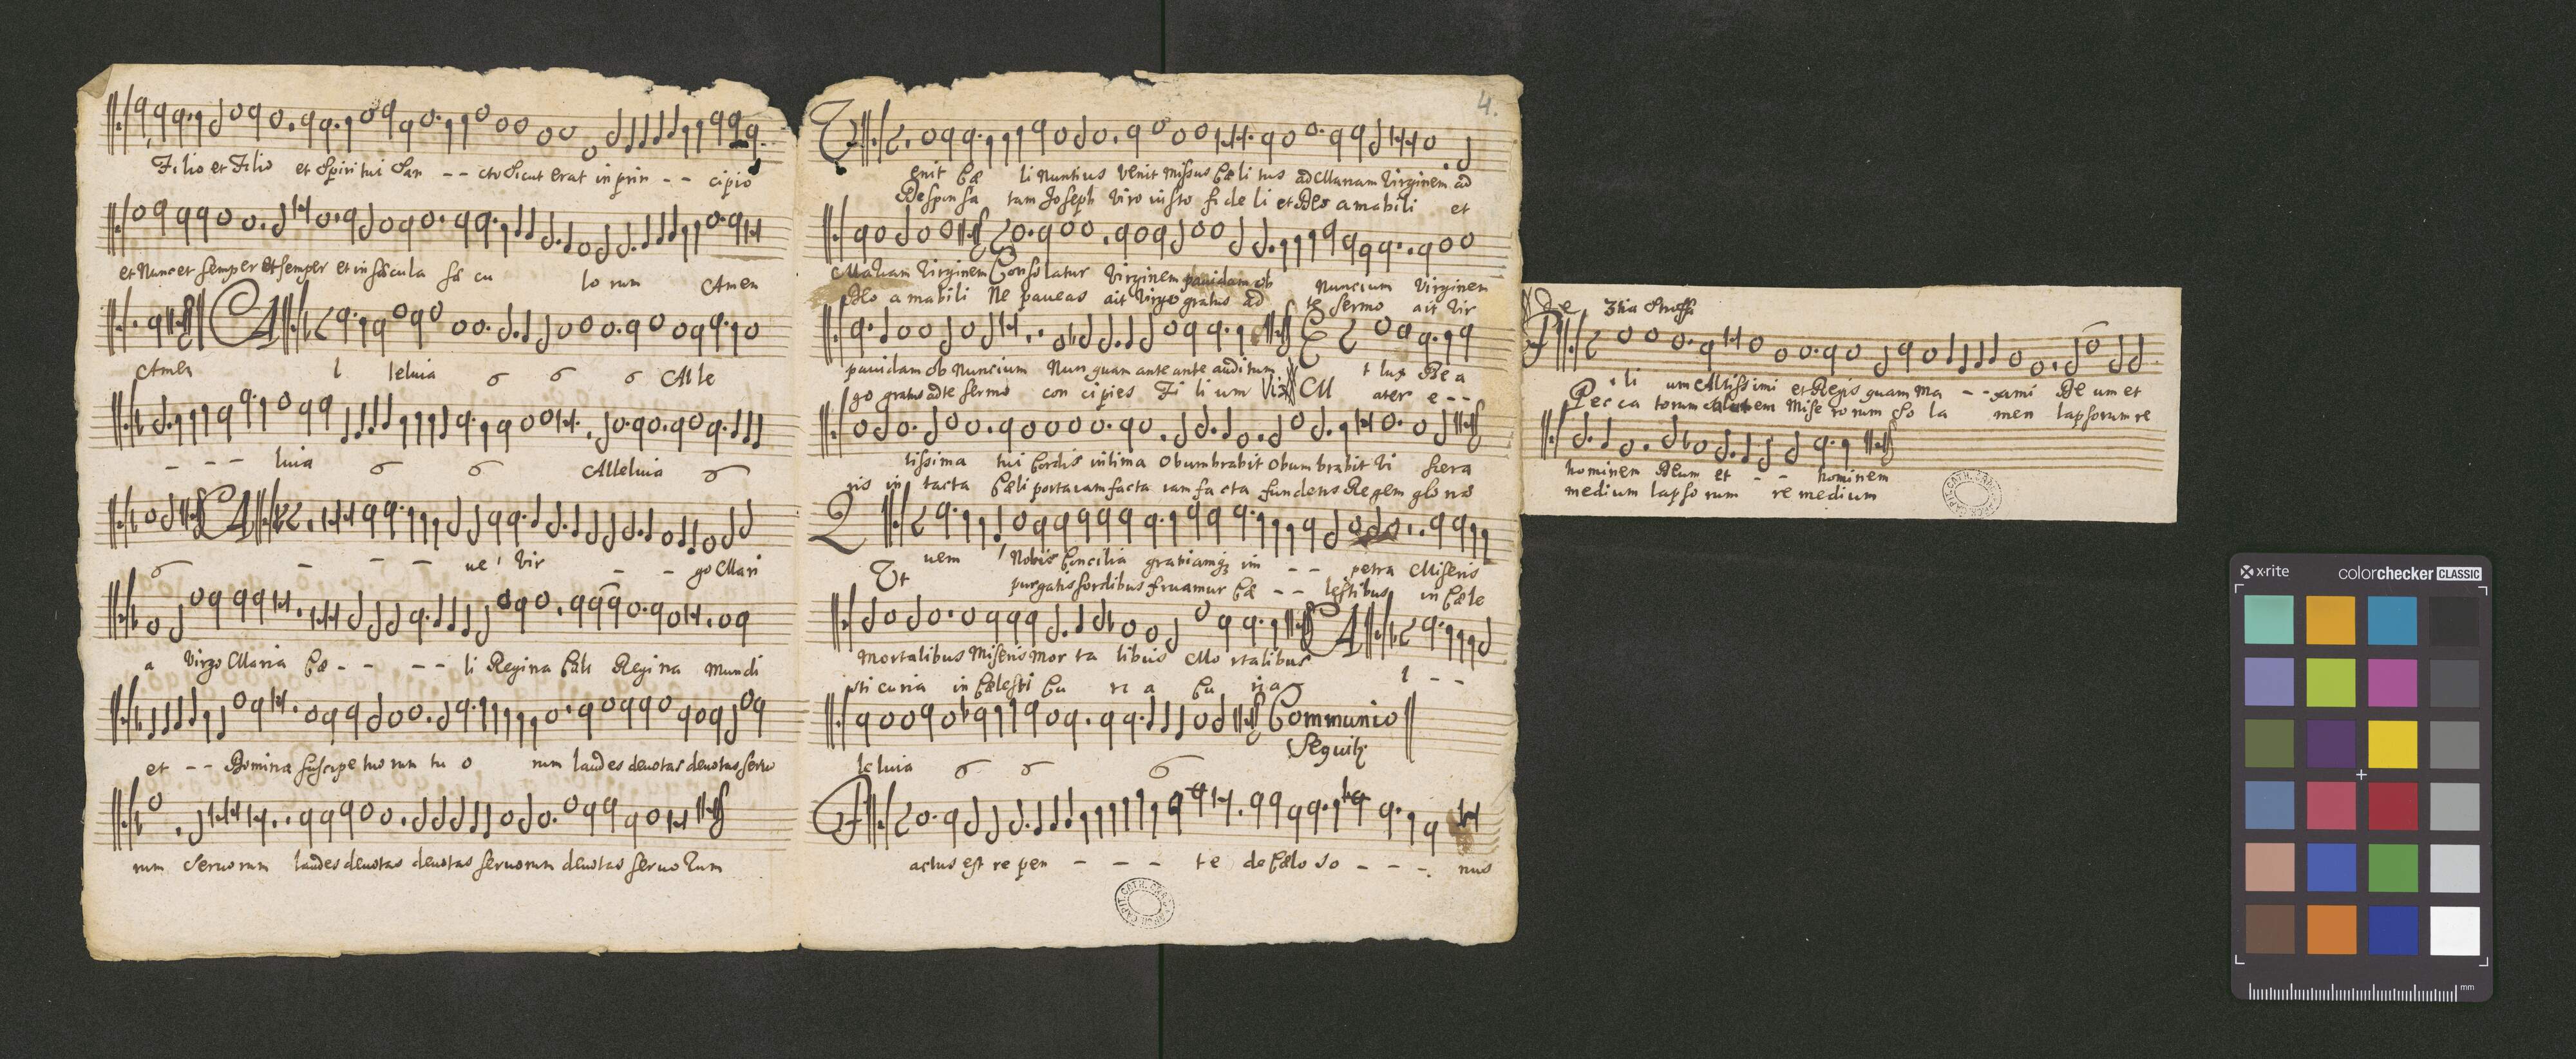 Filio et Filio et Spiritui San - - cto Sicut erat in prin - - cipio
et Nunc et semper et semper et in sæcula sæ cu lo rum Amen
Amen
A l leluia 6 6 6 Alle
- - - luia 6 6 Alleluia 6
6
A - - - ue Vir - - go Mari
a Virgo Maria Cœ - - - - li Regina Cæli Regina Mundi
et - - Domina suscipe tuo rum tu o rum laudes deuotas deuotas seruo
rum Seruorum laudes deuotas deuotas seruorum deuotas seruo rum
4.
V enit Cœ li Nuntius Venit Missus Cœli tus ad Mariam Virginem ad
Desponsa tam Joseph Viro iusto fi de li et Deo amabili et
Mariam Virginem Consolatur Virginem pauidam ob Nuncium Virginem
Deo a mabili Ne paueas ait Virgo gratus ad te sermo ait Vir
pauidam ob Nuncium Nunquam ante ante auditum E t lux Be a
go gratus ad te sermo con cipies Fi li um M ater e - -
tissima tui Cordis intima Obumbrabit Obumbrabit Vi scera
ris in tacta Cæli porta iam facta iam fa cta fundens Regem glo riæ
Q uem Nobis Concilia gratiamq; im - - petra Miseris
Ut purgatis sordibus fruamur Cœ - - lestibus in Cæle
Mortalibus Miseris Mor ta libus Mo rtalibus
sti curia in Cælesti Cu ri a Cu ria A l - -
leluia 6 6 6 Communio
Sequitr
F actus est re pen - - - te de Cælo so - - - nus
3tia Stroffa
F i li um Altissimi et Regis quam Ma - - xami De um et
Pecca torum Mise ro rum So la men lapsorum re
hominem Deum et - - hominem
medium lapso rum re medium
x-rite colorchecker CLASSIC
mm